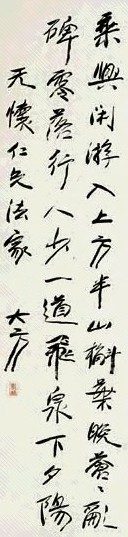 乘興閑游入上方半山槲葉晚蒼々斷
碑零落行人少一道飛泉下夕陽
无懷仁兄法家